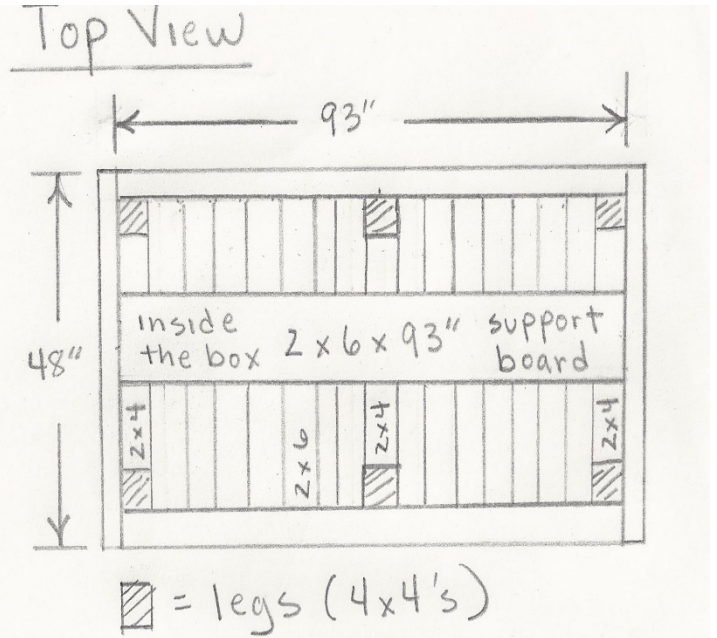 Top View
93"
inside the box 2 x 6 x 93" support board
48"
2x4
2x6
2x4
2x4
= legs (4x4's)